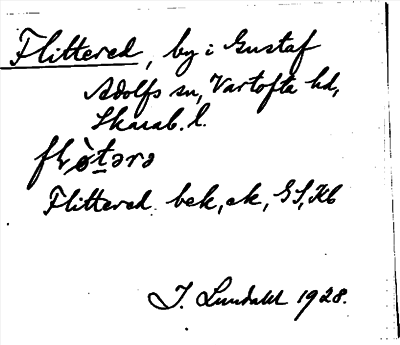 Flittered, by i Gustaf
Adolfs sn, Vartofta hd,
Skarab. l.
Flittered. bek, ek, GS, Kb
I. Lundahl 1928.